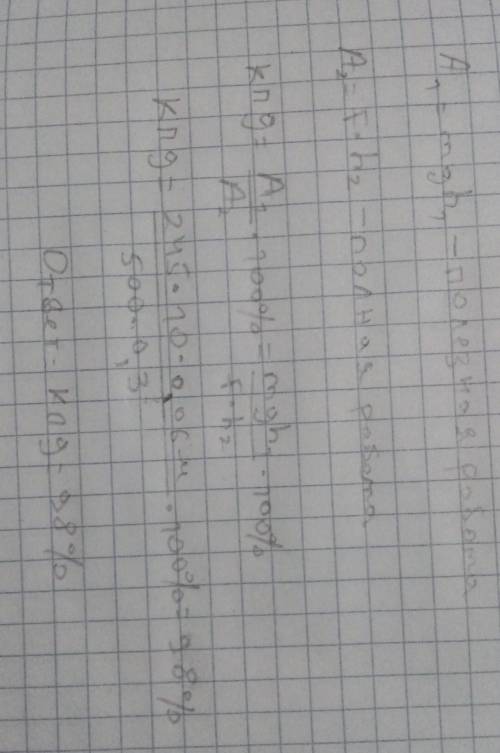 A₁ = mgh₁ - полезная работа
A₂ = F·h₂ - полная работа
КПД = A₁/A₂ · 100% = mgh₁/F·h₂ · 100%
КПД = 245·10·0,06м/500·0,3 · 100% = 98%
Ответ: КПД = 98%